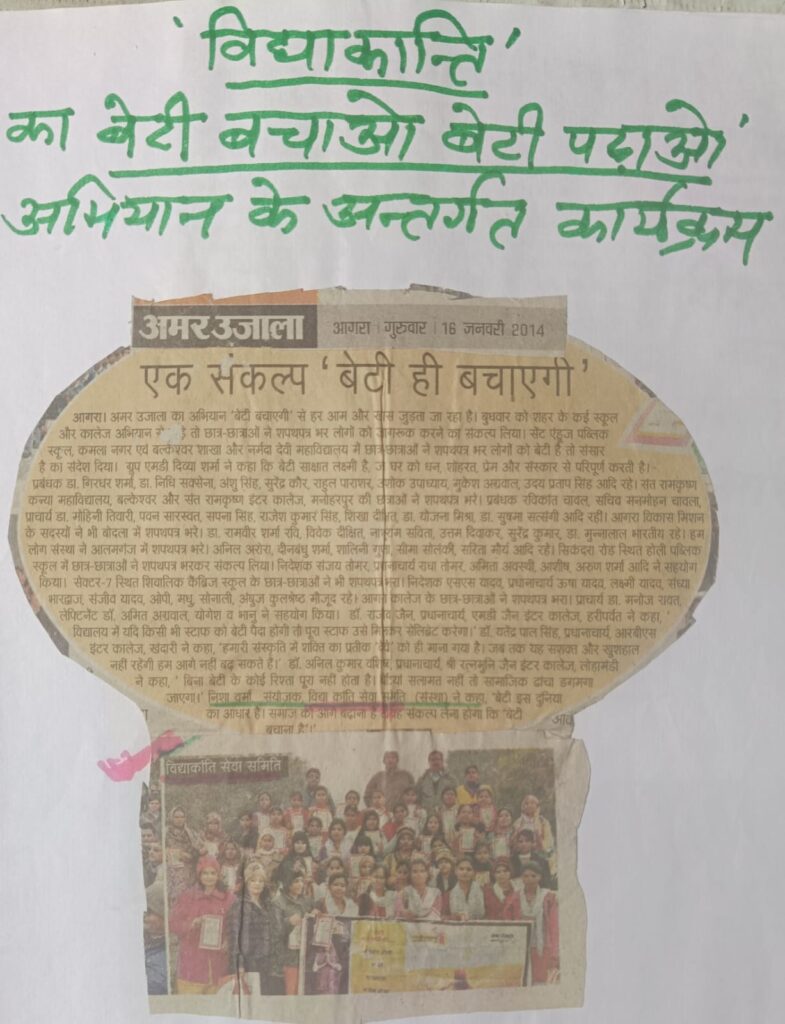 'विद्याकान्ति'
का बेटी बचाओ बेटी पढ़ाओ'
अभियान के अन्तर्गत कार्यक्रम
अमर उजाला
आगरा | गुरुवार | 16 जनवरी 2014
एक संकल्प 'बेटी ही बचाएगी'
आगरा। अमर उजाला का अभियान 'बेटी बचाएगी' से हर आम और खास जुड़ता जा रहा है। बुधवार को शहर के कई स्कूल
और कालेज अभियान से तो छात्र-छात्राओं ने शपथपत्र भर लोगों को जागरूक करने का संकल्प लिया। सेंट एंड्रूज पब्लिक
स्कूल, कमला नगर एवं बल्केश्वर शाखा और नर्मदा देवी महाविद्यालय में छात्र-छात्राओं ने शपथपत्र भर लोगों को बेटी है तो संसार
है का संदेश दिया। ग्रुप एमडी दिव्या शर्मा ने कहा कि बेटी साक्षात लक्ष्मी है, घर को धन, शोहरत, प्रेम और संस्कार से परिपूर्ण करती है।
प्रबंधक डा. गिरधर शर्मा, डा. निधि सक्सेना, अंशु सिंह, सुरेंद्र कौर, राहुल पाराशर, अशोक उपाध्याय, मुकेश अग्रवाल, उदय प्रताप सिंह आदि रहे। संत रामकृष्ण
कन्या महाविद्यालय, बल्केश्वर और संत रामकृष्ण इंटर कालेज, मनोहरपुर की छात्राओं ने शपथपत्र भरे। प्रबंधक रविकांत चावला, सचिव मनमोहन चावला,
प्राचार्य डा. मोहिनी तिवारी, पवन सारस्वत, सपना सिंह, राजेश कुमार सिंह, शिखा दीक्षित, डा. योजना मिश्रा, डा. सुषमा सत्संगी आदि रहीं। आगरा विकास मिशन
के सदस्यों ने भी बोदला में शपथपत्र भरे। डा. रामवीर शर्मा रवि, विवेक दीक्षित, नाथूराम सविता, उत्तम दिवाकर, सुरेंद्र कुमार, डा. मुन्नालाल भारतीय रहे। हम
लोग संस्था ने आलमगंज में शपथपत्र भरे। अनिल अरोरा, दीनबंधु शर्मा, शालिनी गुप्ता, सीमा सोलंकी, सरिता मौर्य आदि रहे। सिकंदरा रोड स्थित होली पब्लिक
स्कूल में छात्र-छात्राओं ने शपथपत्र भरकर संकल्प लिया। निदेशक संजय तोमर, प्रधानाचार्य राधा तोमर, अमिता अवस्थी, आशीष, अरुण शर्मा आदि ने सहयोग
किया। सेक्टर-7 स्थित शिवालिक कैंब्रिज स्कूल के छात्र-छात्राओं ने भी शपथपत्र भरा। निदेशक एसएस यादव, प्रधानाचार्य ऊषा यादव, लक्ष्मी यादव, संध्या
भारद्वाज, संजीव यादव, ओपी, मधु, सोनाली, अंबुज कुलश्रेष्ठ मौजूद रहे। आगरा कालेज के छात्र-छात्राओं ने शपथपत्र भरा। प्राचार्य डा. मनोज रावत,
लेफ्टिनेंट डॉ. अमित अग्रवाल, योगेश व भानु ने सहयोग किया। डॉ. राजेंद्र जैन, प्रधानाचार्य, एमडी जैन इंटर कालेज, हरीपर्वत ने कहा, '
विद्यालय में यदि किसी भी स्टाफ को बेटी पैदा होगी तो पूरा स्टाफ उसे मिलकर सेलिब्रेट करेगा।' डॉ. यतेंद्र पाल सिंह, प्रधानाचार्य, आरबीएस
इंटर कालेज, खंदारी ने कहा, 'हमारी संस्कृति में शक्ति का प्रतीक 'देवी' को ही माना गया है। जब तक यह सशक्त और खुशहाल
नहीं रहेगी हम आगे नहीं बढ़ सकते हैं।' डॉ. अनिल कुमार वशिष्ठ, प्रधानाचार्य, श्री रत्नमुनि जैन इंटर कालेज, लोहामंडी
ने कहा, ' बिना बेटी के कोई रिश्ता पूरा नहीं होता है। बेटियां सलामत नहीं तो सामाजिक ढांचा डगमगा
जाएगा।' निशा वर्मा, संयोजक, विद्या कांति सेवा समिति (संस्था) ने कहा, 'बेटी इस दुनिया
का आधार है। समाज को आगे बढ़ाना है यह संकल्प लेना होगा कि 'बेटी
बचाना है'।'
विद्याकांति सेवा समिति